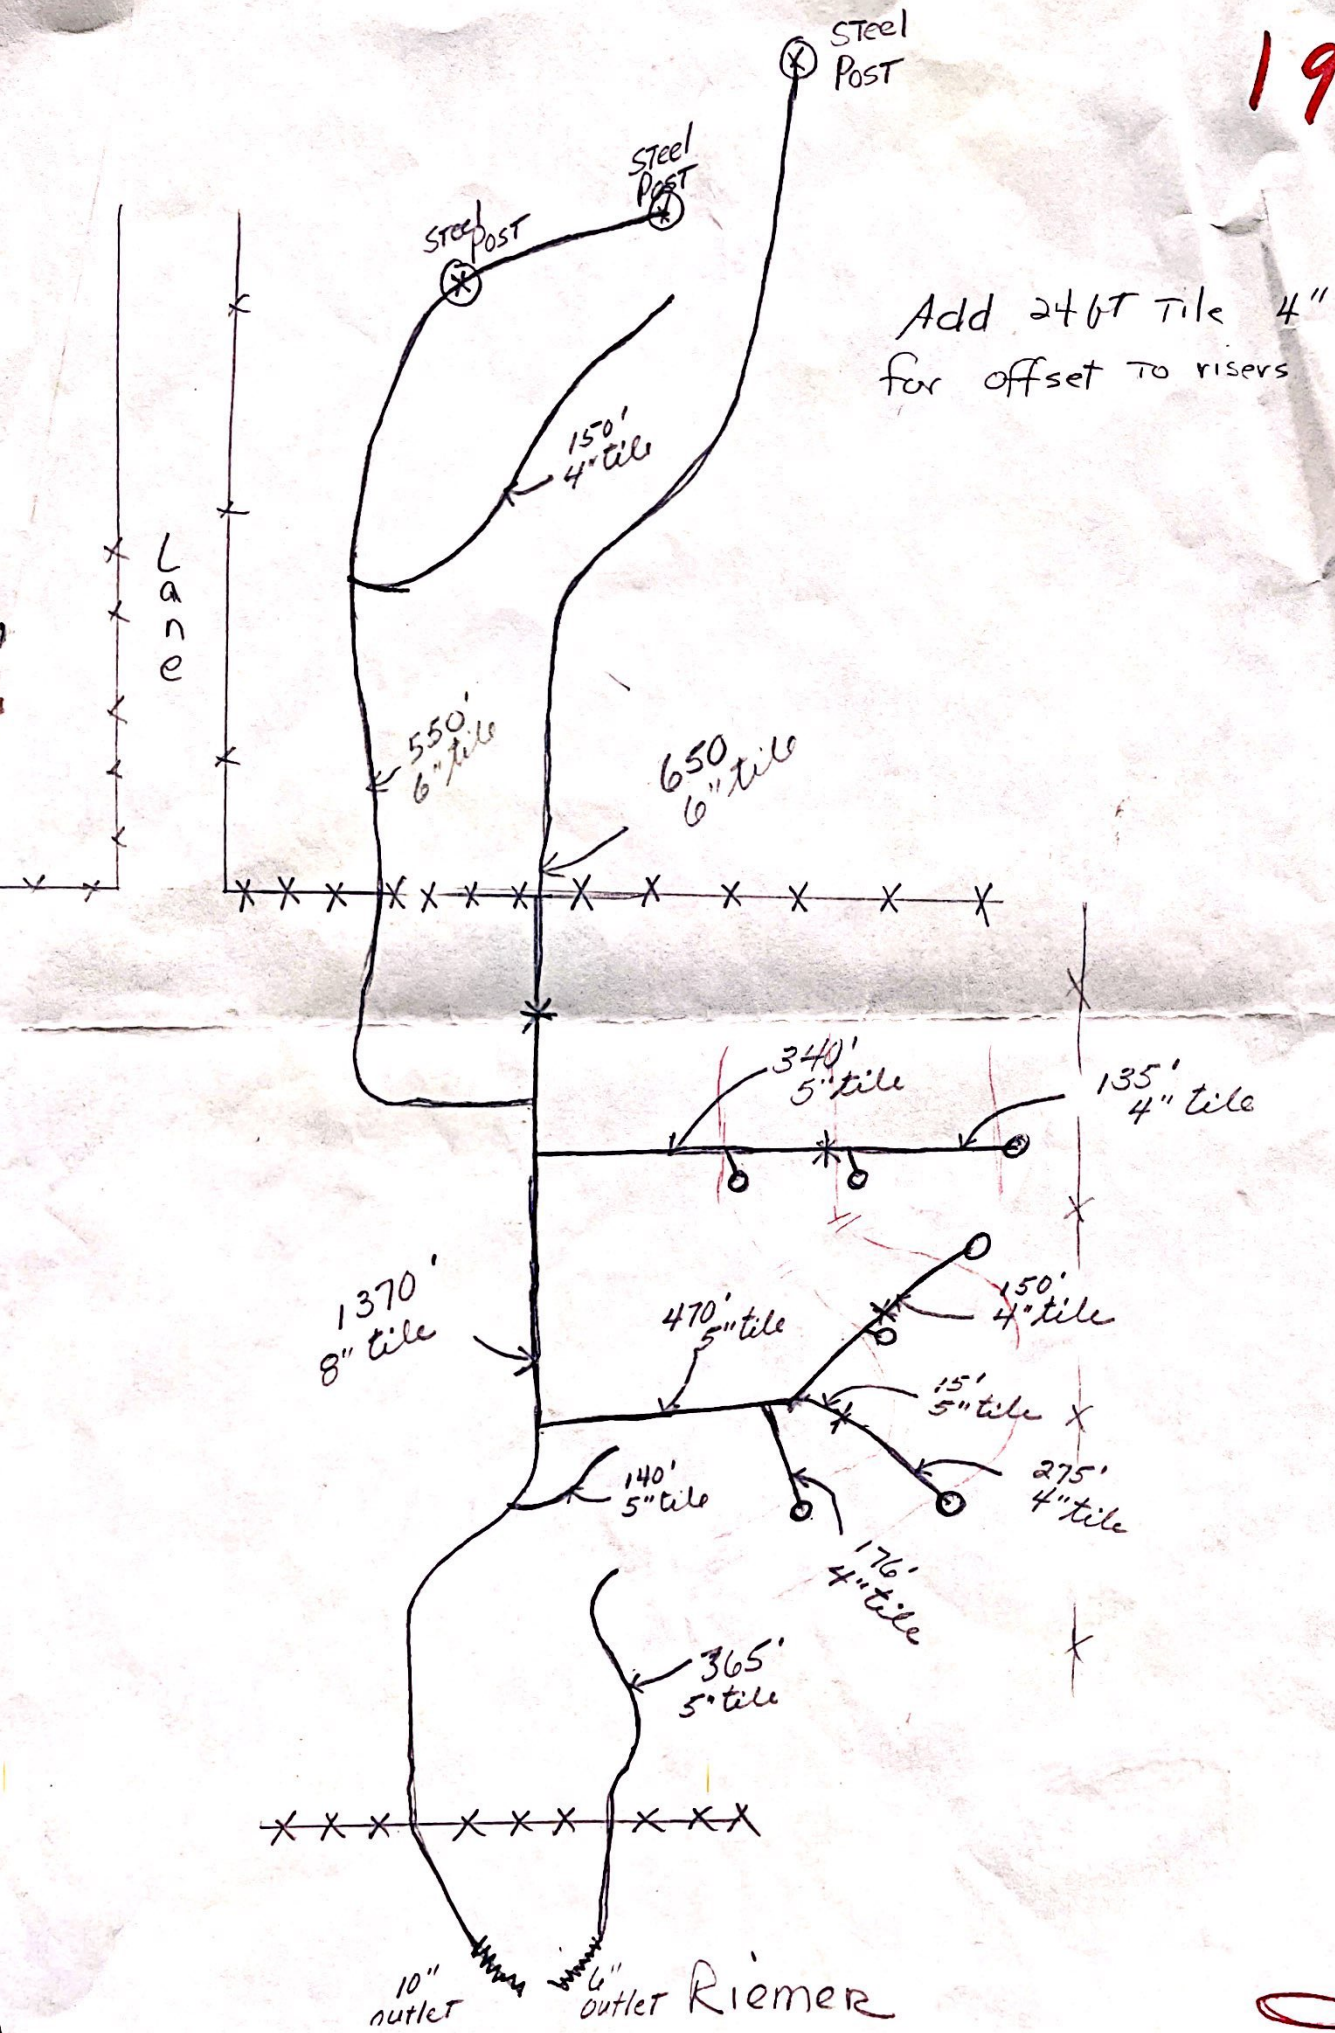 Steel
Post
19
Steel
Post
Steel
Post
Add 24 ft Tile 4"
for offset To risers
150'
4" tile
Lane
550'
6" tile
650
6" tile
340'
5" tile
135'
4" tile
1370'
8" tile
470'
5" tile
150'
4" tile
15'
5" tile
140'
5" tile
275'
4" tile
176'
4" tile
365'
5" tile
10"
outlet
6"
outlet
Riemer